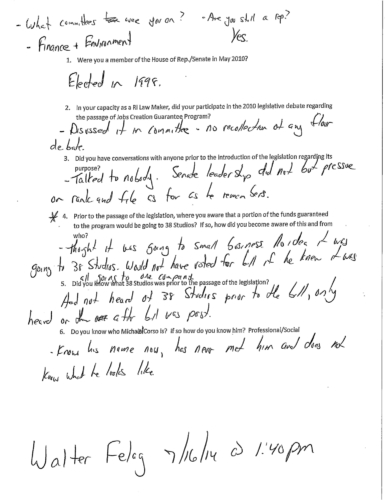 - What committees were you on? - Are you still a rep?
- Finance + Environment Yes.
1. Were you a member of the House of Rep./Senate in May 2010?
Elected in 1998.
2. In your capacity as a RI Law Maker, did your participate in the 2010 legislative debate regarding
the passage of Jobs Creation Guarantee Program?
- Discussed it in committee - no recollection of any floor
debate.
3. Did you have conversations with anyone prior to the introduction of the legislation regarding its
purpose?
- Talked to nobody. Senate leadership did not put pressure
on rank and file as far as he remembers.
* 4. Prior to the passage of the legislation, where you aware that a portion of the funds guaranteed
to the program would be going to 38 Studios? If so, how did you become aware of this and from
who?
- thought it was going to small business. No idea it was
going to 38 Studios. Would not have voted for bill if he knew it was
all going to one company.
5. Did you know what 38 Studios was prior to the passage of the legislation?
Had not heard of 38 Studios prior to the bill, only
heard on the after bill was past.
6. Do you know who Michael Corso is? If so how do you know him? Professional/Social
- Knows his name now, has never met him and does not
know what he looks like
Walter Felag 7/16/14 @ 1:40 pm